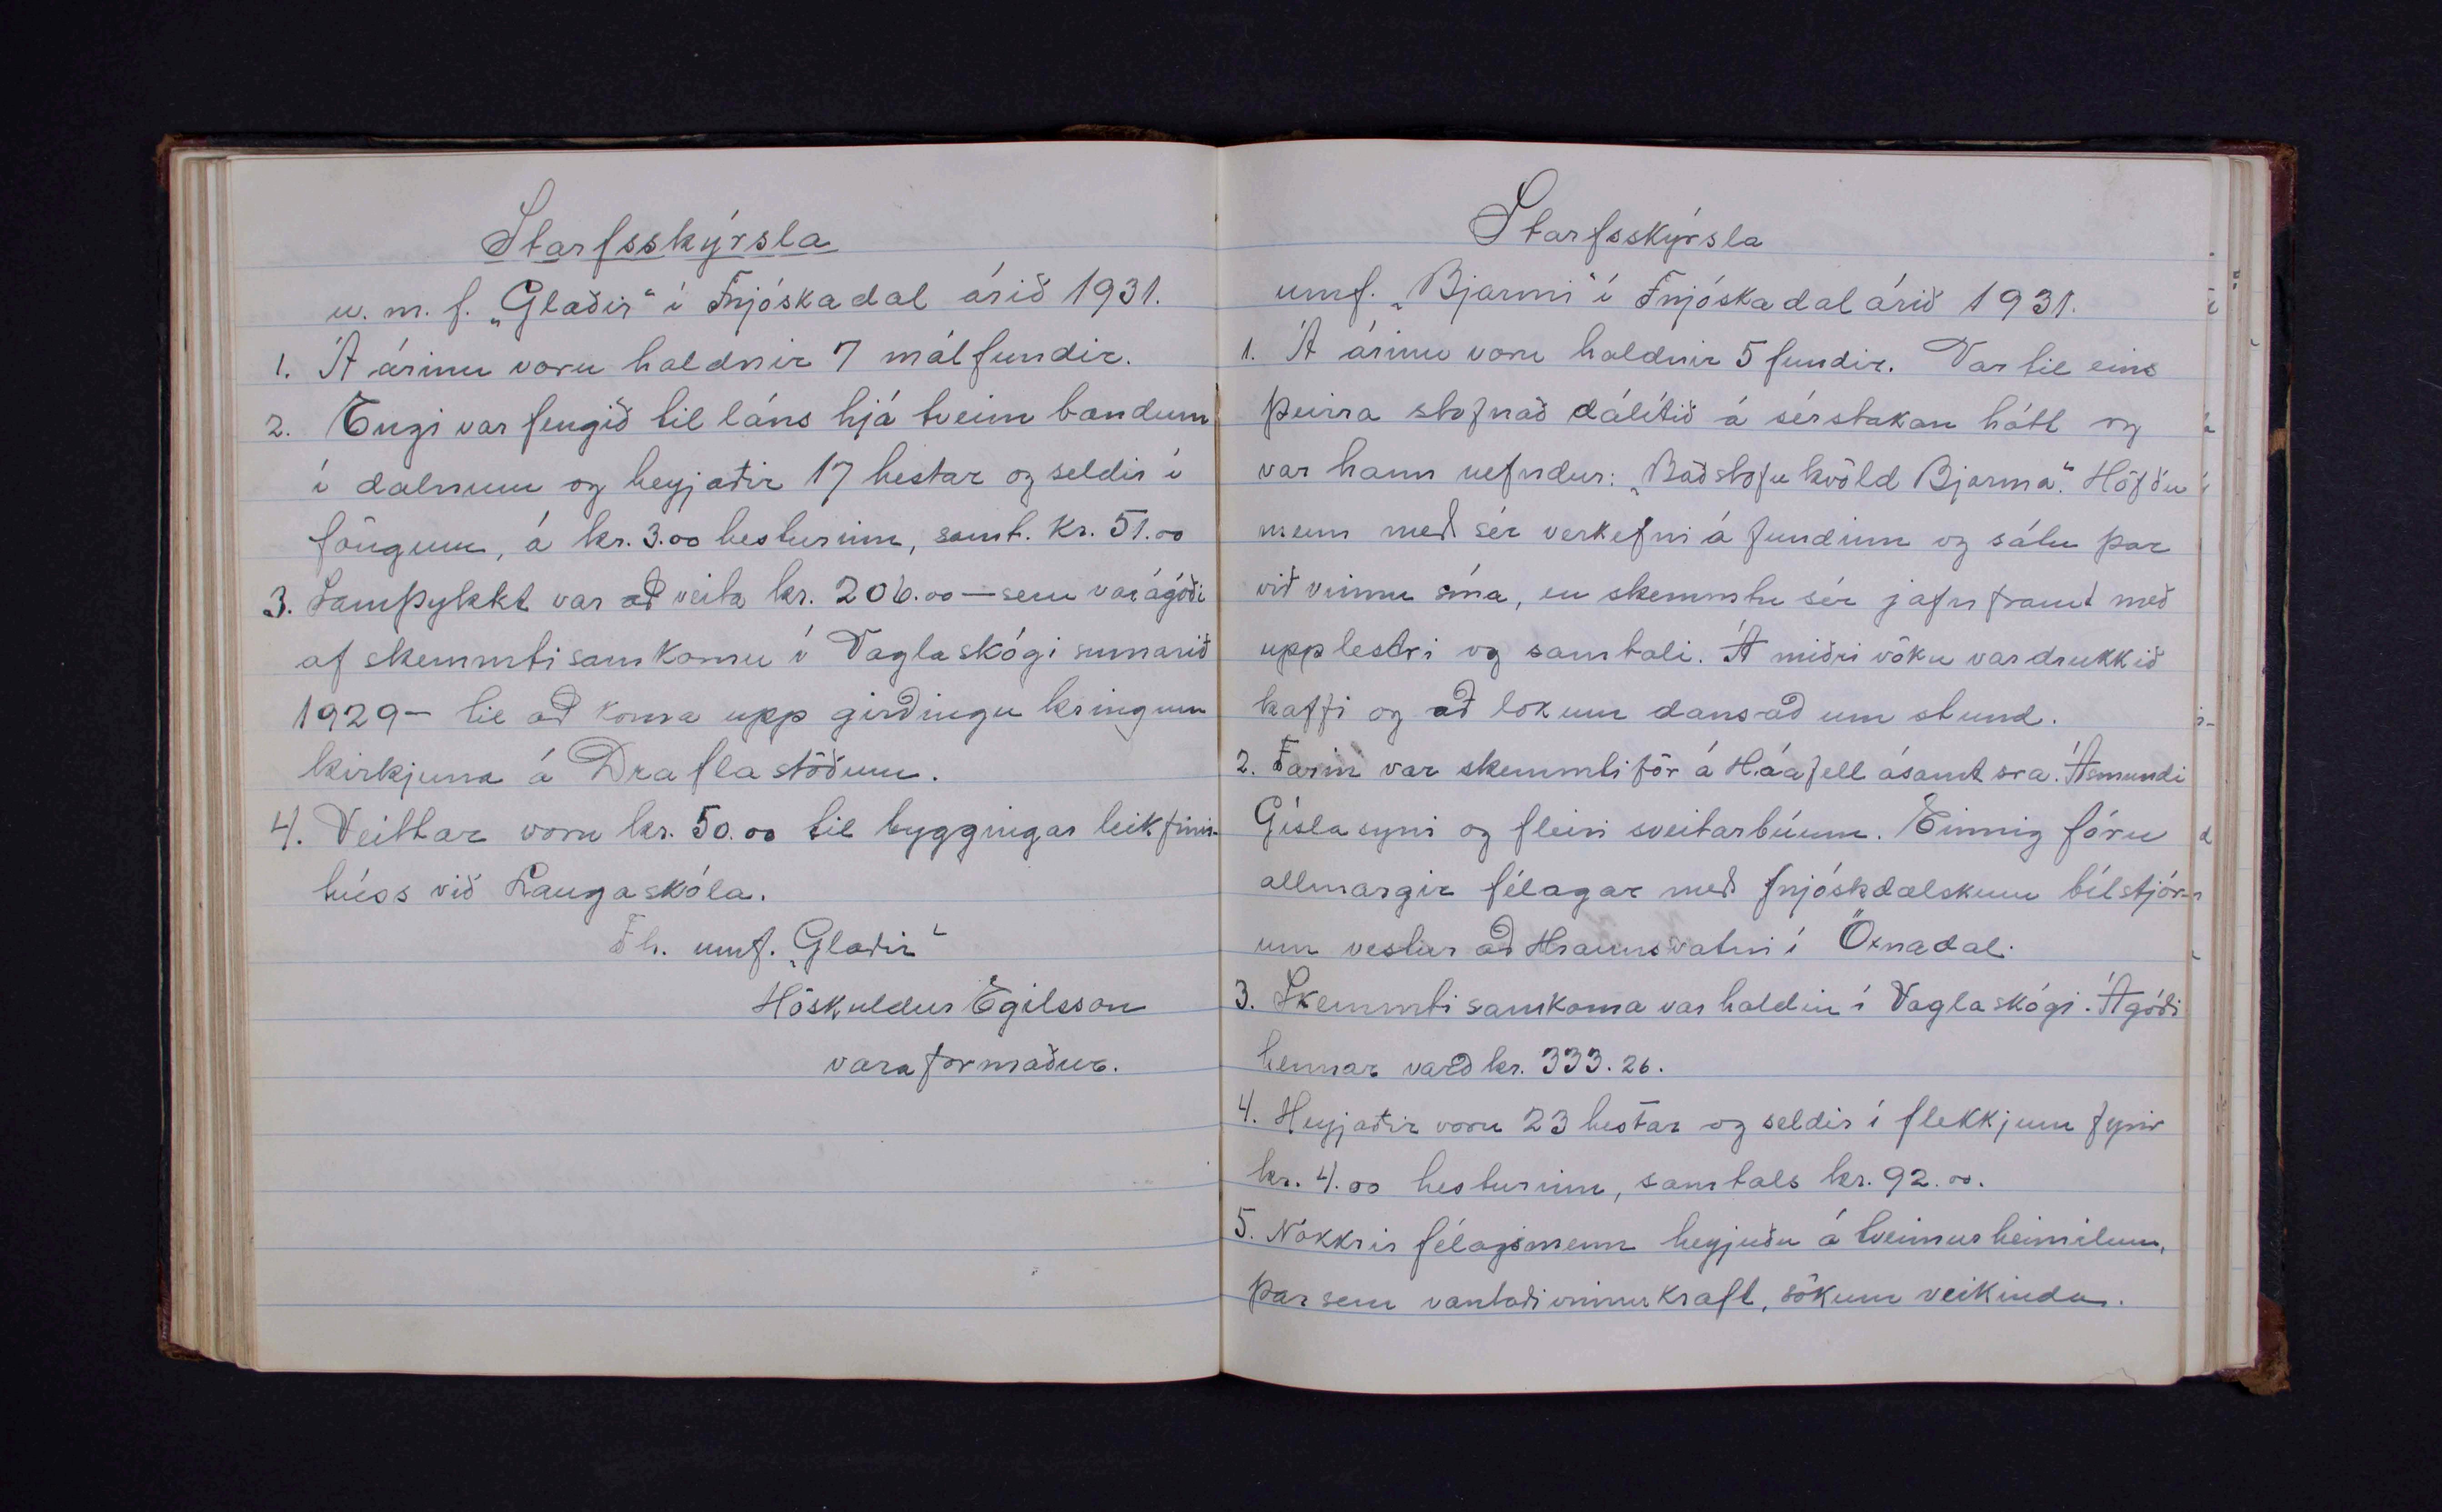 Starfsskýrsla
u. m. f. „Glaðir“ í Fnjóskadal árið 1931.
1. Á árinu voru haldnir 7 málfundir.
2. Engi var fengið til láns hjá tveim bændum
í dalnum og heyjaðir 17 hestar og seldir í
föngum, á kr. 3.00 hesturinn, samt. kr. 51.00
3. Samþykkt var að veita kr. 206.00 — sem var ágóði
af skemmtisamkomu í Vaglaskógi sumarið
1929 — til að koma upp girðingu kringum
kirkjuna á Draflastöðum.
4. Veittar voru kr. 50.00 til byggingar leikfimis-
húss við Laugaskóla.
F.h. umf. „Glaðir“
Höskuldur Egilsson
varaformaður.
Starfsskýrsla
umf. „Bjarmi“ í Fnjóskadal árið 1931.
1. Á árinu voru haldnir 5 fundir. Var til eins
þeirra stofnað dálítið á sérstakan hátt og
var hann nefndur: „Baðstofukvöld Bjarma“. Höfðu
menn með sér verkefni á fundinn og sátu þar
við vinnu sína, en skemmtu sér jafnframt með
upplestri og samtali. Á miðri vöku var drukkið
kaffi og að lokum dansað um stund.
2. Farin var skemmtiför á Háafell ásamt sra. Ásmundi
Gíslasyni og fleiri sveitarbúum. Einnig fóru
allmargir félagar með fnjóskdælskum bílstjór-
um vestur að Hraunsvatni í Öxnadal.
3. Skemmtisamkoma var haldin í Vaglaskógi. Ágóði
hennar varð kr. 333.26.
4. Heyjaðir voru 23 hestar og seldir í flekkjum fyrir
kr. 4.00 hesturinn, samtals kr. 92.00.
5. Nokkrir félagsmenn heyjuðu á tveimur heimilum,
þar sem vantaði vinnukraft, sökum veikinda.